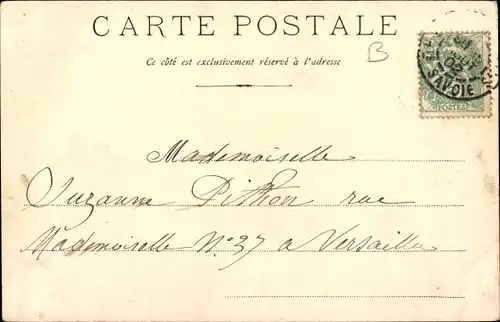 CARTE POSTALE
B
Ce côté est exclusivement réservé à l'adresse
SAVOIE
POSTES
Mademoiselle
Suzanne Pithon rue
Mademoiselle N° 37 a Versailles